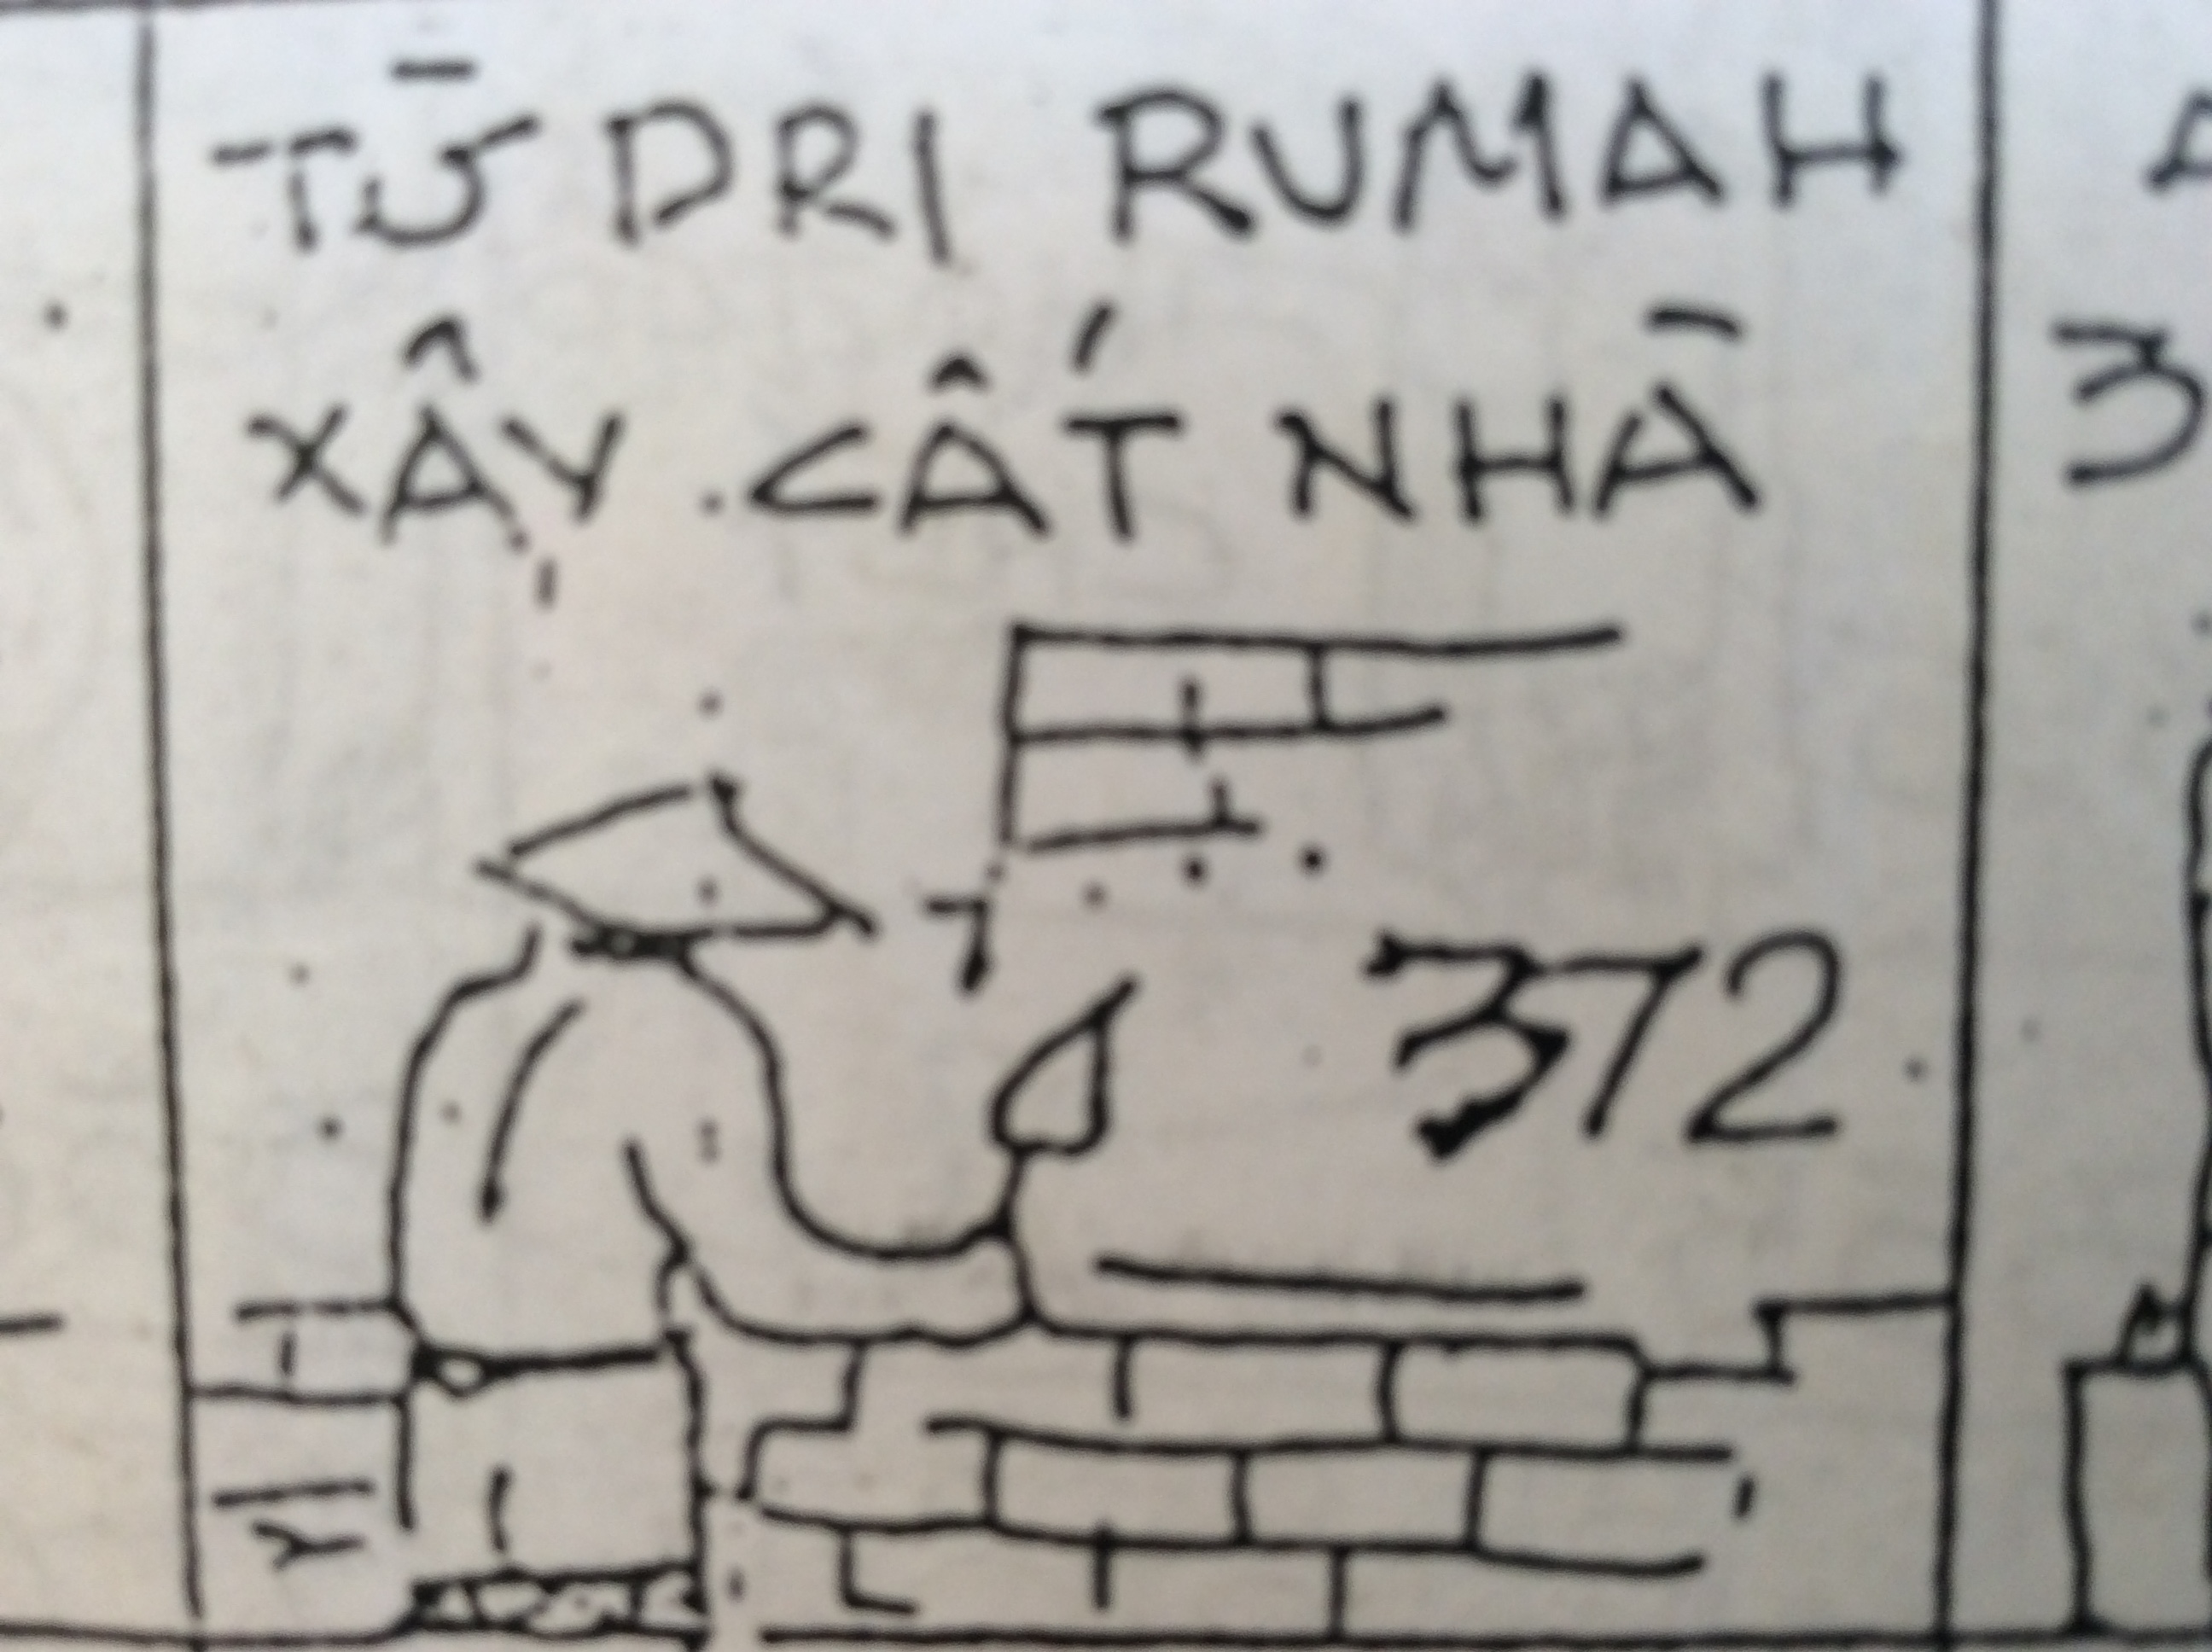 TỪ DRI RUMAH
XÂY CẤT NHÀ
372